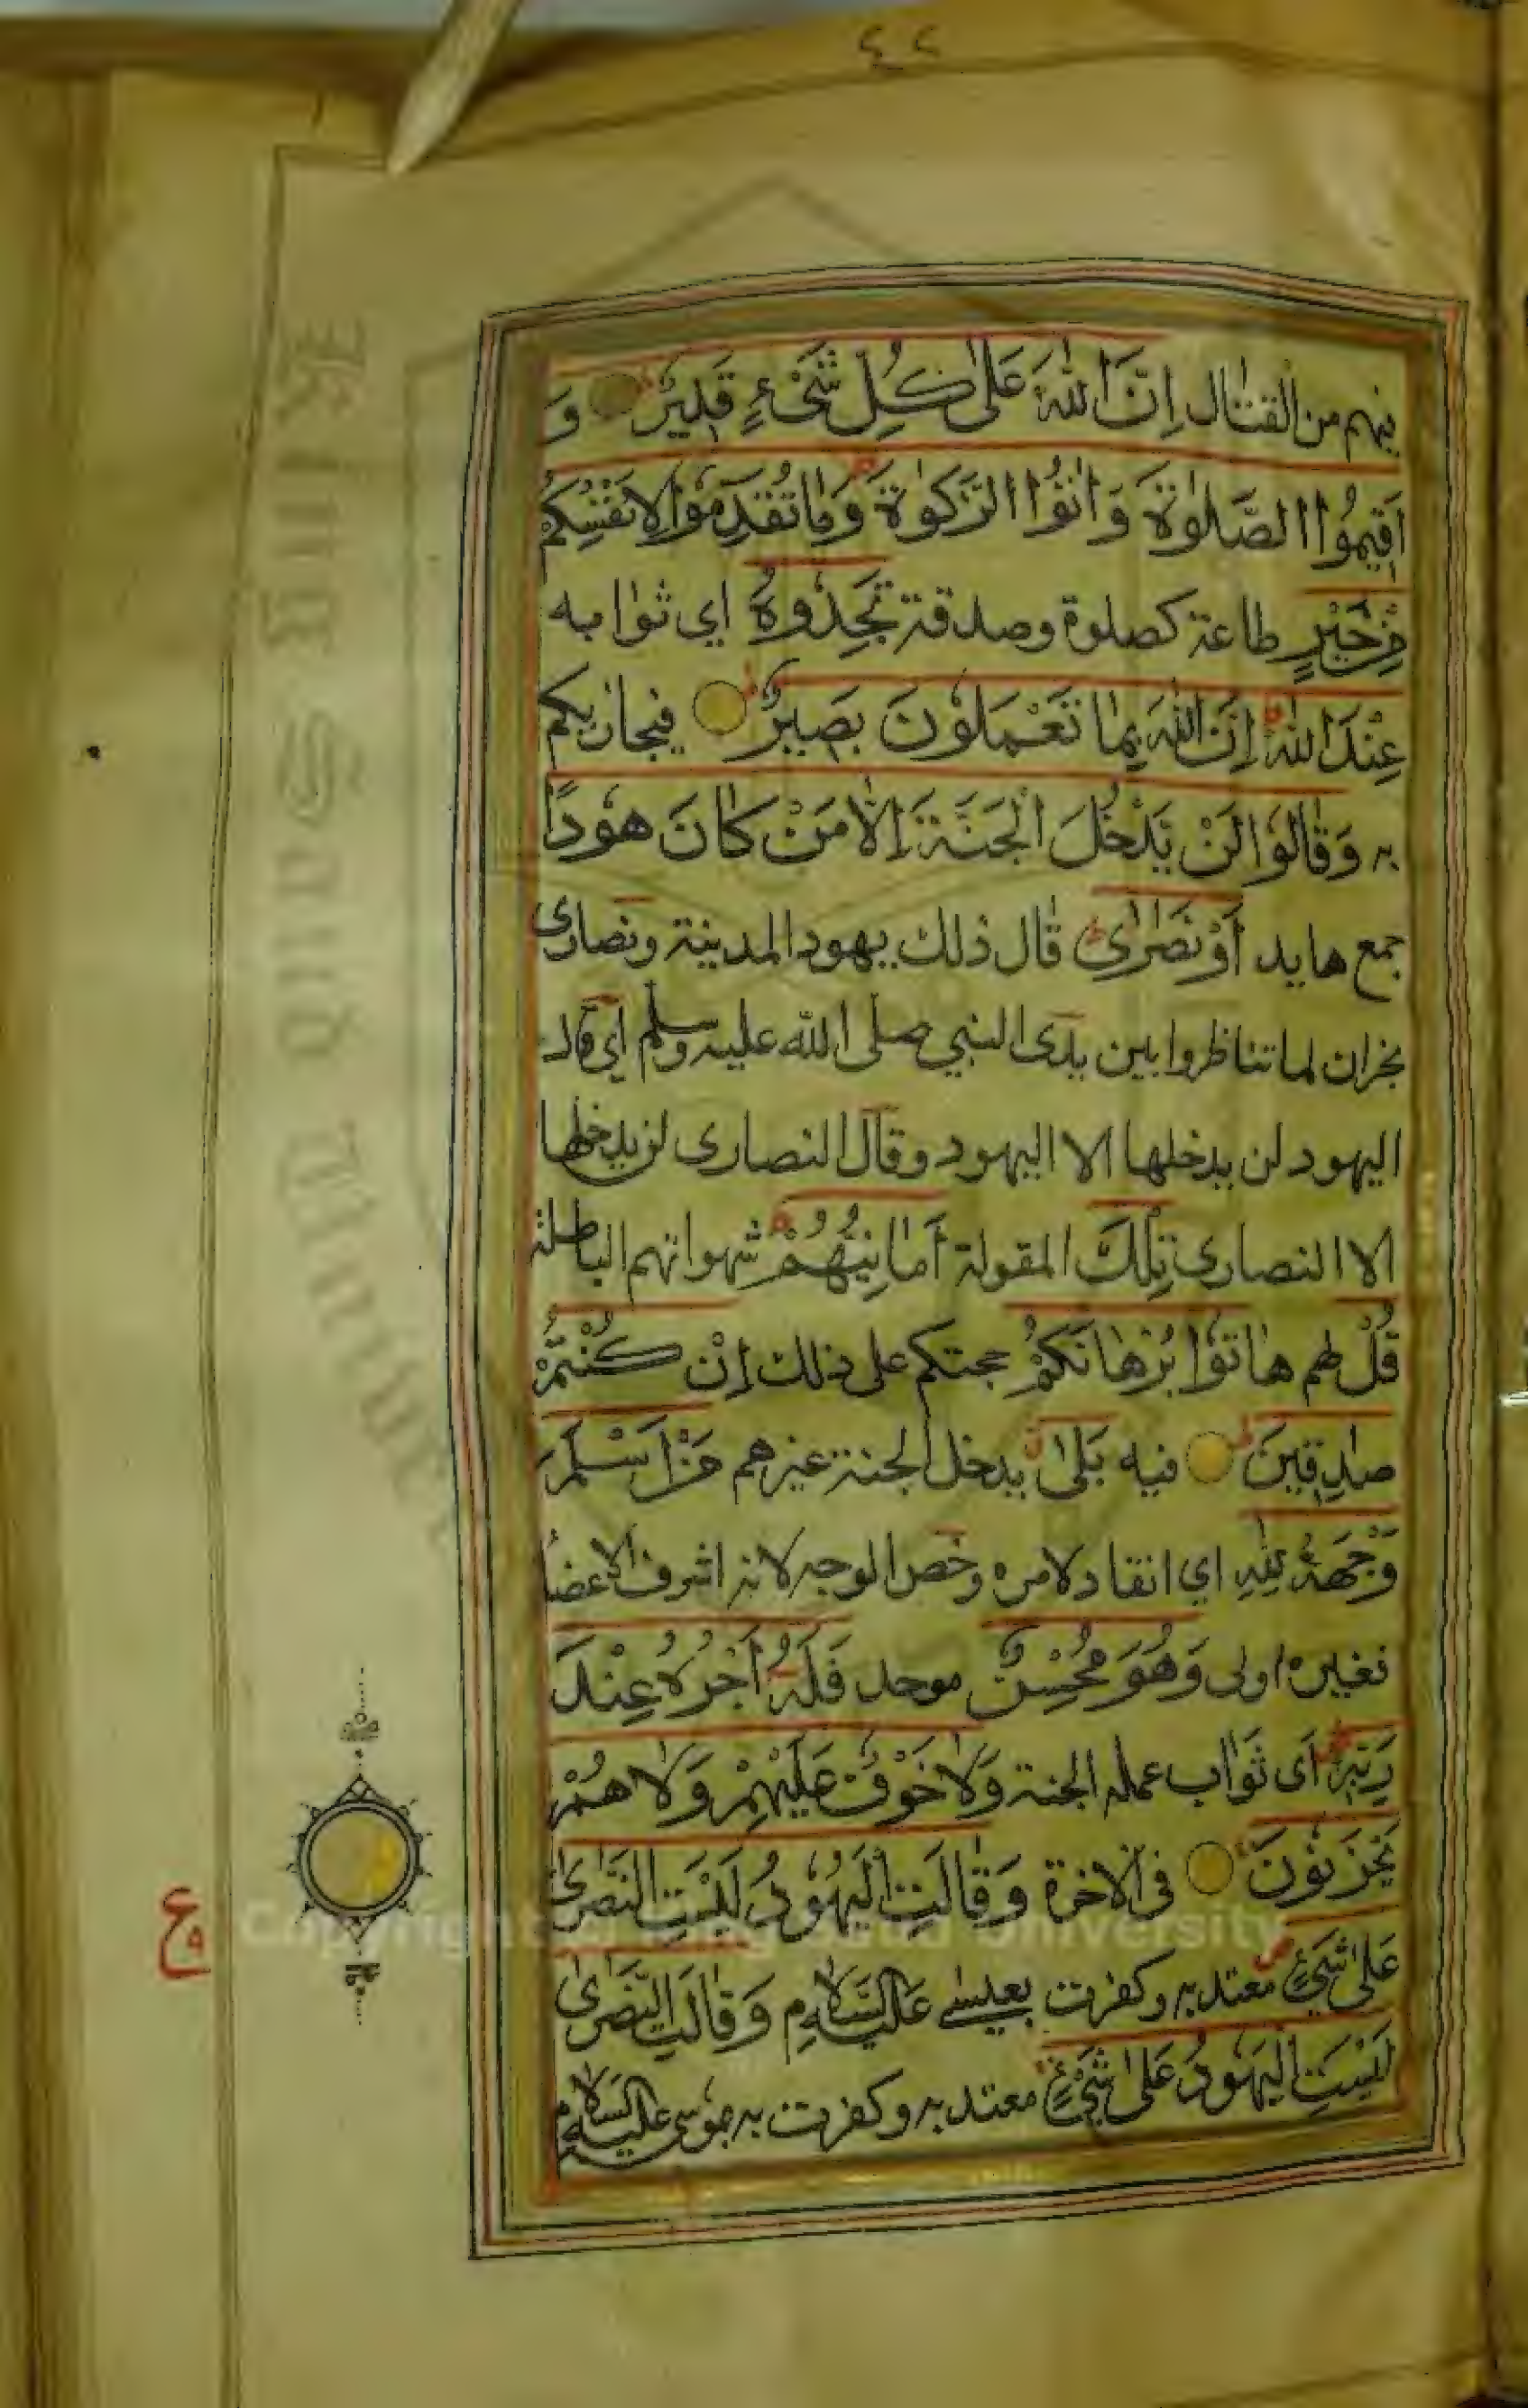 ٤٢
فيهم من القتال اِنَّ اللّٰهَ عَلٰى كُلِّ شَىْءٍ قَدِيْرٌ وَ
اَقِيْمُوا الصَّلٰوةَ وَاٰتُوا الزَّكٰوةَ وَمَا تُقَدِّمُوْا لِاَنْفُسِكُمْ
مِّنْ خَيْرٍ طاعة كصلوة وصدقة تَجِدُوْهُ اي ثوابه
عِنْدَ اللّٰهِ اِنَّ اللّٰهَ بِمَا تَعْمَلُوْنَ بَصِيْرٌ فيجازيكم
به وَقَالُوْا لَنْ يَّدْخُلَ الْجَنَّةَ اِلَّا مَنْ كَانَ هُوْدًا
جمع هايد اَوْ نَصٰرٰى قال ذلك يهود المدينة ونصارى
نجران لما تناظروا بين يدى النبي صلى الله عليه وسلم اي قال
اليهود لن يدخلها الا اليهود وقال النصارى لن يدخلها
الا النصارى تِلْكَ المقولة اَمَانِيُّهُمْ شهواتهم الباطلة
قُلْ لهم هَاتُوْا بُرْهَانَكُمْ حجتكم على ذلك اِنْ كُنْتُمْ
صٰدِقِيْنَ فيه بَلٰى يدخل الجنة غيرهم مَنْ اَسْلَمَ
وَجْهَهٗ لِلّٰهِ اي انقاد لامره وخص الوجه لانه اشرف الاعضا
فغيره اولى وَهُوَ مُحْسِنٌ موحد فَلَهٗ اَجْرُهٗ عِنْدَ
رَبِّهٖ اى ثواب عمله الجنة وَلَا خَوْفٌ عَلَيْهِمْ وَلَا هُمْ
يَحْزَنُوْنَ فى الاخرة وَقَالَتِ الْيَهُوْدُ لَيْسَتِ النَّصٰرٰى
عَلٰى شَىْءٍ معتد به وكفرت بعيسى عليه السلام وَقَالَتِ النَّصٰرٰى
لَيْسَتِ الْيَهُوْدُ عَلٰى شَىْءٍ معتد به وكفرت به موسى عليه السلام
ع
King Saud University
Copyright © King Saud University